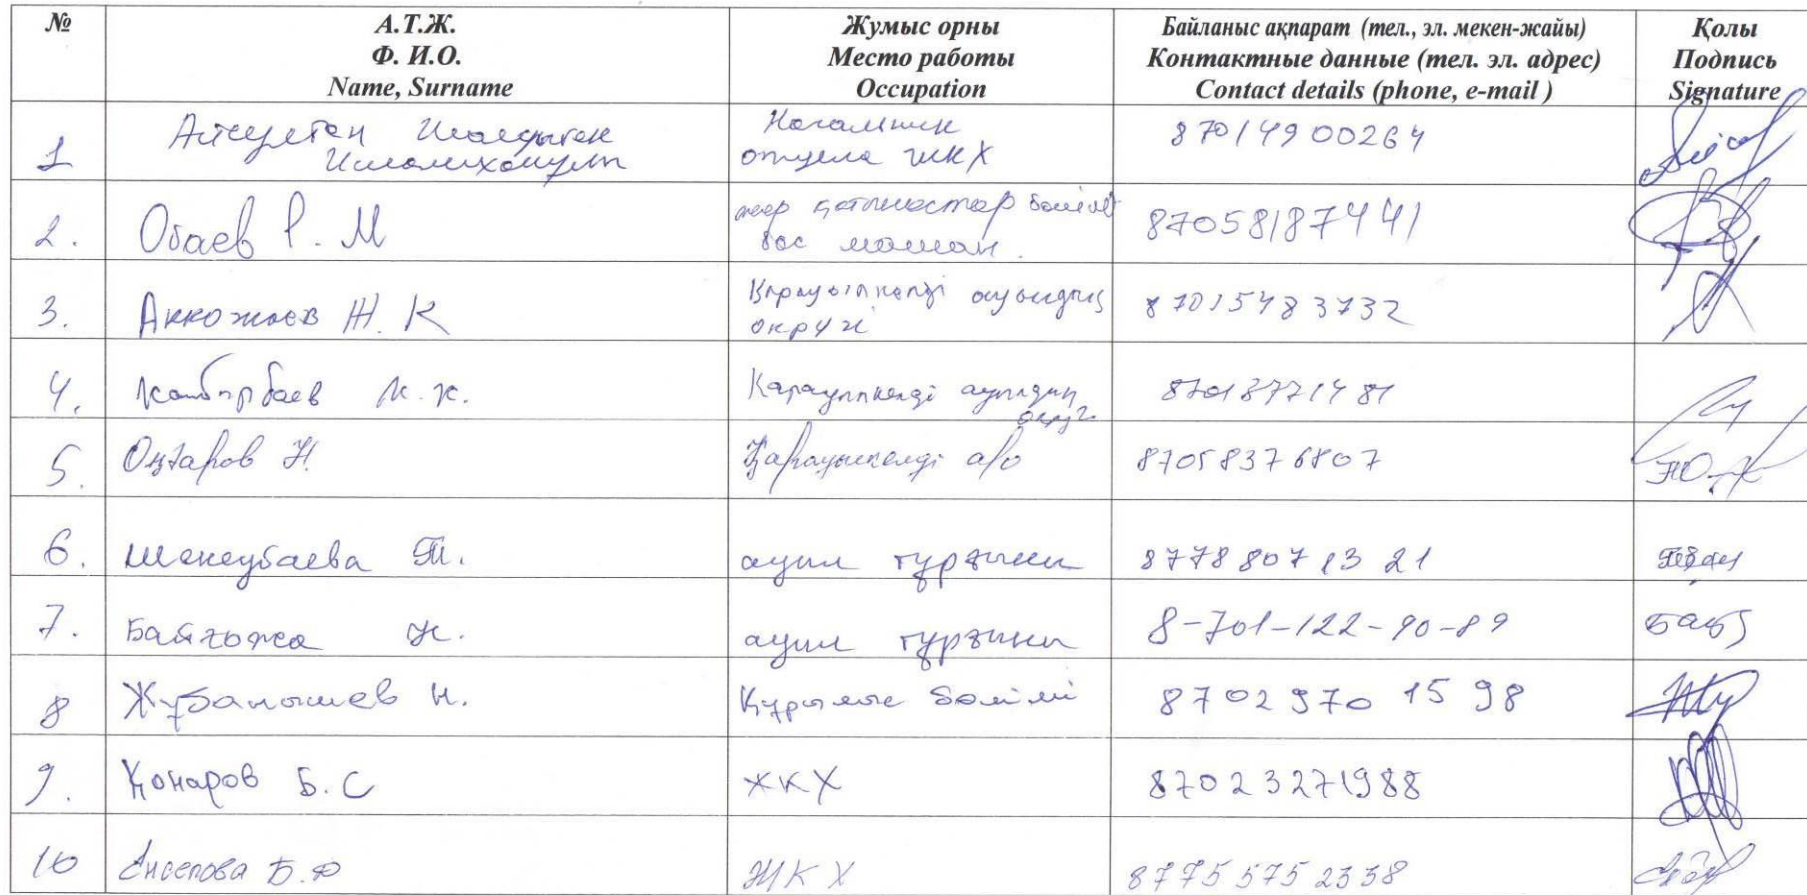 №
А.Т.Ж.
Ф. И.О.
Name, Surname
Жумыс орны
Место работы
Occupation
Байланыс ақпарат (тел., эл. мекен-жайы)
Контактные данные (тел. эл. адрес)
Contact details (phone, e-mail )
Қолы
Подпись
Signature
1
Начальник
отдела ЖКХ
87014900264
2. Обаев Р. М
жер бөлімі
бас маман.
87058187441
3. Аккожаев Ж. К
Қарауылкелді ауылдық
округі
87015483732
4. М. К.
Карауылкелді ауылдық
округі
87013771481
5. Н.
Қарауылкелді а/о
87058376807
6. Шекеубаева Т. ауыл тұрғыны 87788071321
7. Байғожа ауыл тұрғыны 8-701-122-90-89
8 Жұбанышев Н. Құрылыс бөлімі 8702 970 15 98
9. Қонаров Б.С ЖКХ 87023271988
10 Б.Ф ЖКХ 8775 575 2338